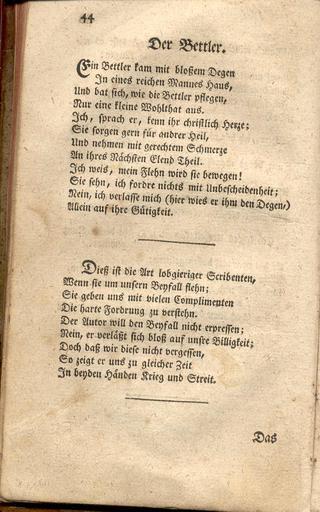 44
Der Bettler.
Ein Bettler kam mit bloßem Degen
In eines reichen Mannes Haus,
Und bat sich, wie die Bettler pflegen,
Nur eine kleine Wohlthat aus.
Ich, sprach er, kenn ihr christlich Herze;
Sie sorgen gern für andrer Heil,
Und nehmen mit gerechtem Schmerze
An ihres Nächsten Elend Theil.
Ich weis, mein Flehn wird sie bewegen!
Sie sehn, ich fordre nichts mit Unbescheidenheit;
Nein, ich verlasse mich (hier wies er ihm den Degen)
Allein auf ihre Gütigkeit.
Dieß ist die Art lobgieriger Scribenten,
Wenn sie um unsern Beyfall flehn;
Sie geben uns mit vielen Complimenten
Die harte Fordrung zu verstehn.
Der Autor will den Beyfall nicht erpressen;
Nein, er verläßt sich bloß auf unsre Billigkeit;
Doch daß wir diese nicht vergessen,
So zeigt er uns zu gleicher Zeit
In beyden Händen Krieg und Streit.
Das